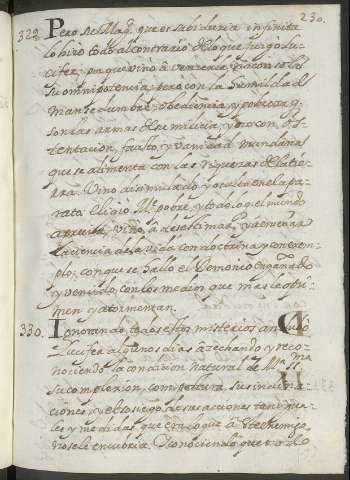 230.
329. Pero su Magd. que es sabiduria infinita
lo hizo todo al contrario de lo que juzgò Lu-
cifer; porque vino à vencerle, no con sola
su omnipotencia, pero con la humildad
mansedumbre, obediencia, y pobreza q.
son las armas de su milicia, y no con os-
tentacion, fausto, y vanidad mundana
que se alimenta con las riquezas de la tie-
rra. Vino disimulado y oculto en el apa-
rato, eligiò Me. pobre, y todo lo q. el mundo
aprecia, vino à desestimar, y à enseñar
la ciencia de la vida con doctrina, y con exem-
plo; con que se hallò el Demonio engañado
y vencido con los medios que mas le opri-
men y atormentan.
330. Ignorando todos estos misterios anduvo
Lucifer algunos dias azechando, y reco-
nociendo la condicion natural de Ma. SSma.
su complexion, compostura, sus inclina-
ciones, y el sosiego de sus acciones tan igua-
les y medidas, que era lo que à este enemigo
no se le encubria. Y conociendo que todo